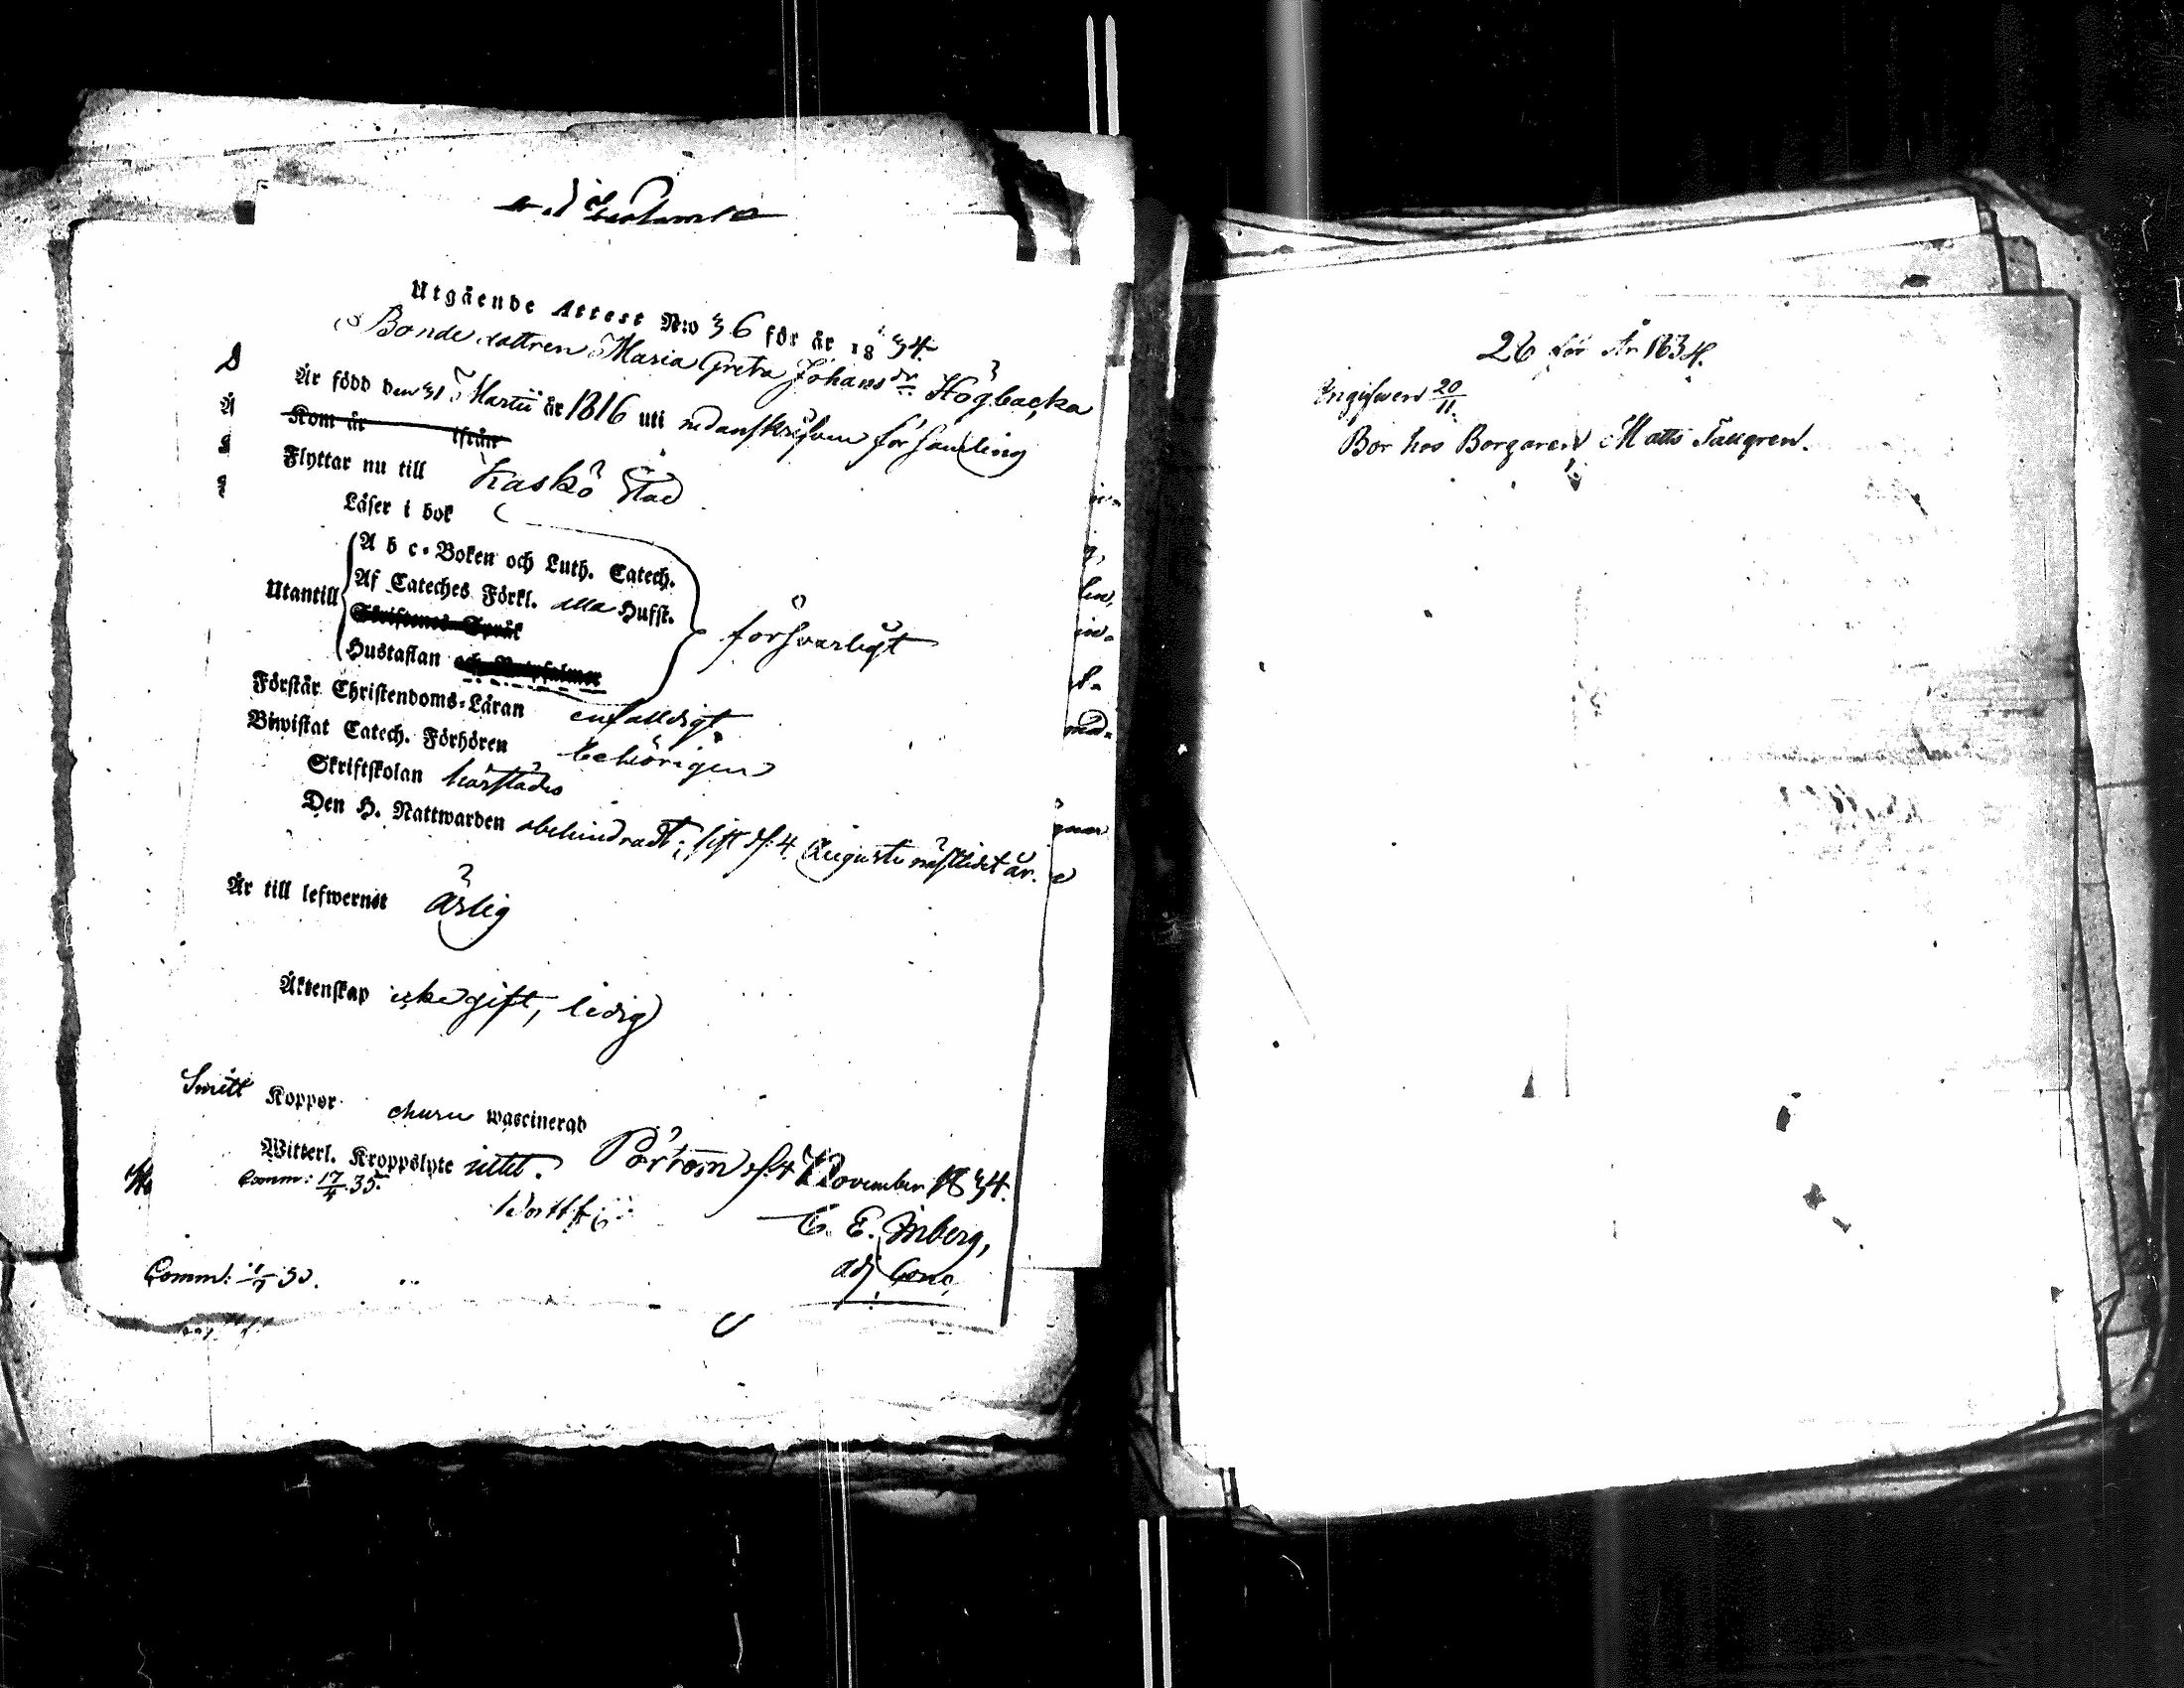 Utgående Attest N:o 36 för år 1834.
Bondedottren Maria Greta Johansdr Högbacka
Är född den 31 Martii år 1816 uti nedanskrifven församling
Kom år ifrån
Flyttar nu till Kaskö Stad
Läser i bok
Utantill
A b c-Boken och Luth. Catech.
Af Cateches Förkl. alla Hufst.
Skriftenes Språk
Hustaflan och
försvarligt
Förstår Christendoms-Läran enfalldigt
Biwistat Catech. Förhören behörigen
Skriftskolan härstädes
Den H. Nattwarden obehindradt; sist d. 4 Augusti nästledit år.
Är till lefwernet ärlig
Äktenskap icke gift, ledig
Koppor wascinerad
Witterl. Kroppslyte intet. Pörtom d. 4 November 1834.
Comm: 17/4 35.
C. E.
adj
Comm:
26 för År 1834.
Ingifwen 20/11.
Bor hos Borgaren Matts Tallgren.